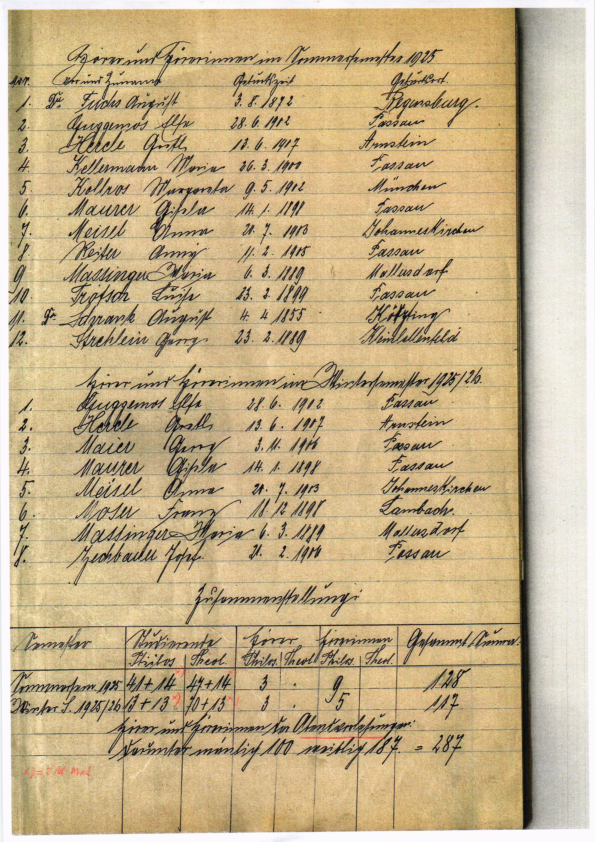 Hörer und Hörerinnen im Sommersemester 1925
Vor und Zuname Geburtszeit Geburtsort
1. Dr. Fuchs August 3. 8. 1872 Regensburg.
2. Guggemos Else 28. 6. 1902 Passau
3. Hercle Gretl 13. 6. 1907 Arnstein
4 Kellermann Maria 26. 3. 1900 Passau
5. Kollros Margareta 9. 5. 1902 München
6. Maurer Gisela 14. 1. 1898 Passau
7. Meisel Anna 20. 7. 1903 Johanneskirchen
8. Reiter Anny 11. 2. 1905 Passau
9 Massinger Maria 6. 3. 1889 Mallersdorf
10. Trötsch Luise 23. 2. 1899 Passau
11. Dr. Schrank August 4. 4 1855 Kötzting
12. Strehlein Georg 23. 2. 1889
Hörer und Hörerinnen im Wintersemester 1925/26.
1. Guggemos Else 28. 6. 1902 Passau
2. Hercle Gretl 13. 6. 1907 Arnstein
3. Maier Georg 3. 11. 1906 Passau
4. Maurer Gisela 14. 1. 1898 Passau
5. Meisel Anna 20. 7. 1903 Johanneskirchen
6. Moser Franz 18 12 1898 Lambach.
7. Massinger Maria 6. 3. 1889 Mallersdorf
8. Zechbauer Josef 21. 2. 1906 Passau
Zusammenstellung:
Semester Studierende Hörer Hörerinnen Gesammt-Summe.
Philos Theol Philos Theol Philos Theol.
Sommersem. 1925 41 + 14 47 + 14 3 . 9 128
Winter S. 1925/26 13 + 13 70 + 13 3 . 5 117
Hörer und Hörerinnen der Abendvorlesungen:
Darunter männlich 100 weiblich 187. = 287